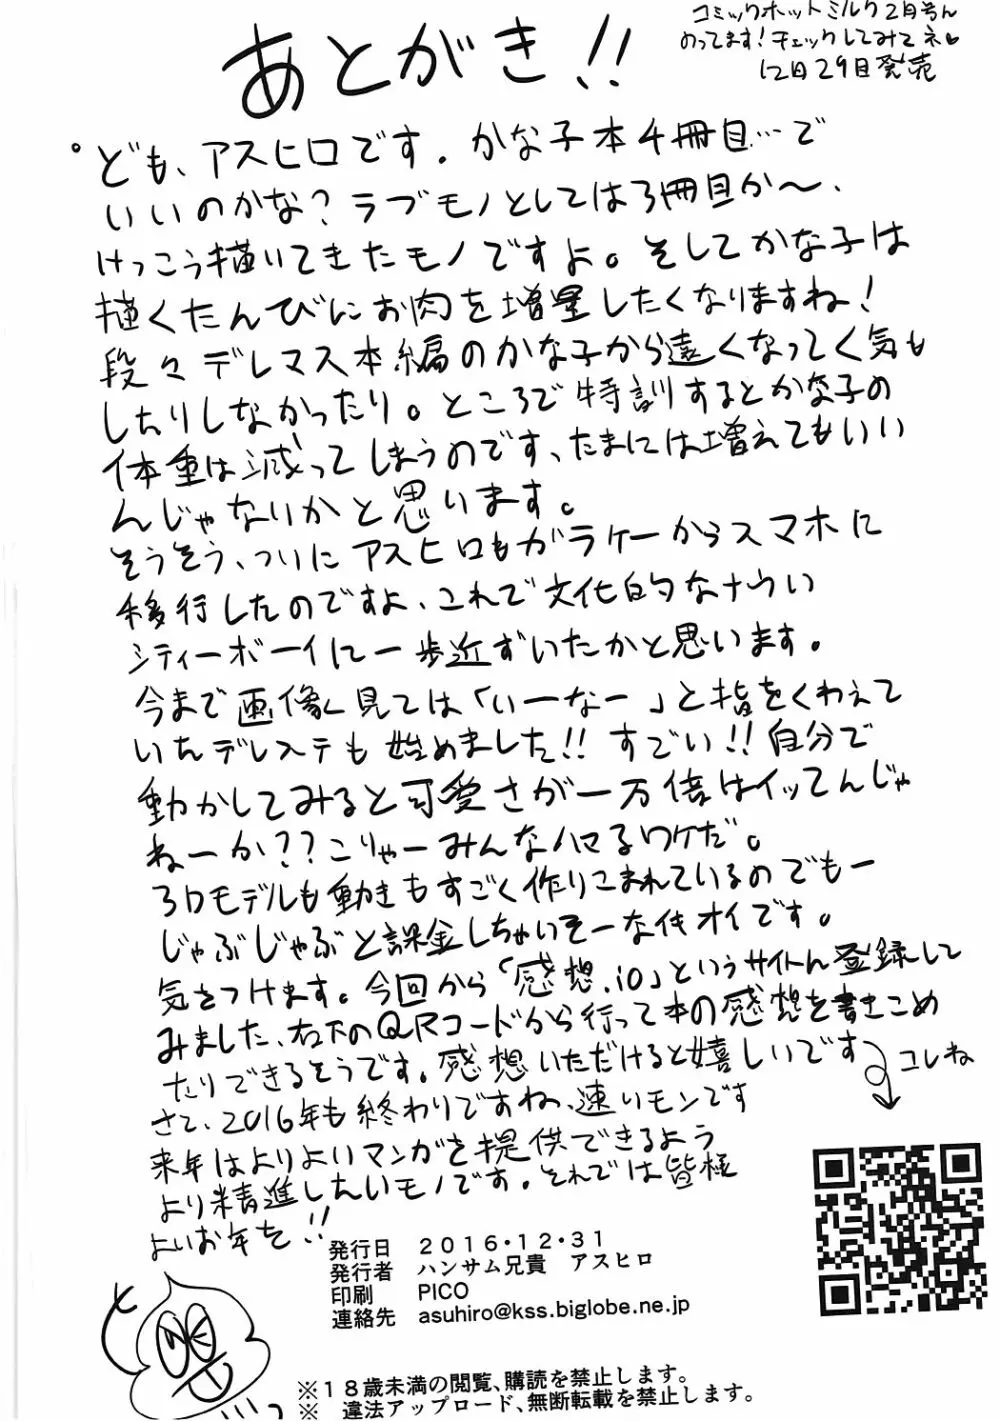 あとがき!!
コミックホットミルク2月号ん
のってます!チェックしてみてネ♥
12日29日発売
ども、アスヒロです。かな子本4冊目…で
いいのかな?ラブモノとしては3冊目か〜、
けっこう描いてきたモノですよ。そしてかな子は
描くたんびにお肉を増量したくなりますね!
段々デレマス本編のかな子から遠くなってく気も
したりしなかったり。ところで特訓するとかな子の
体重は減ってしまうのです、たまには増えてもいい
んじゃないかと思います。
そうそう、ついにアスヒロもガラケーからスマホに
移行したのですよ、これで文化的なナウい
シティーボーイに一歩近ずいたかと思います。
今まで画像見ては「いーなー」と指をくわえて
いたデレステも始めました!!すごい!!自分で
動かしてみると可愛さが一万倍はイッてんじゃ
ねーか??こりゃーみんなハマるワケだ。
3Dモデルも動きもすごく作りこまれているのでもー
じゃぶじゃぶと課金しちゃいそーなイキオイです。
気をつけます。今回から「感想.io」というサイトん登録して
みました、右下のQRコードから行って本の感想を書きこめ
たりできるそうです。感想いただけると嬉しいです
コレね
さて、2016年も終わりですね、速いモンです
来年はよりよいマンガを提供できるよう
より精進したいモノです。それでは皆様
よいお年を!!
発行日 2016・12・31
発行者 ハンサム兄貴 アスヒロ
印刷 PICO
連絡先 asuhiro@kss.biglobe.ne.jp
※18歳未満の閲覧、購読を禁止します。
※ 違法アップロード、無断転載を禁止します。